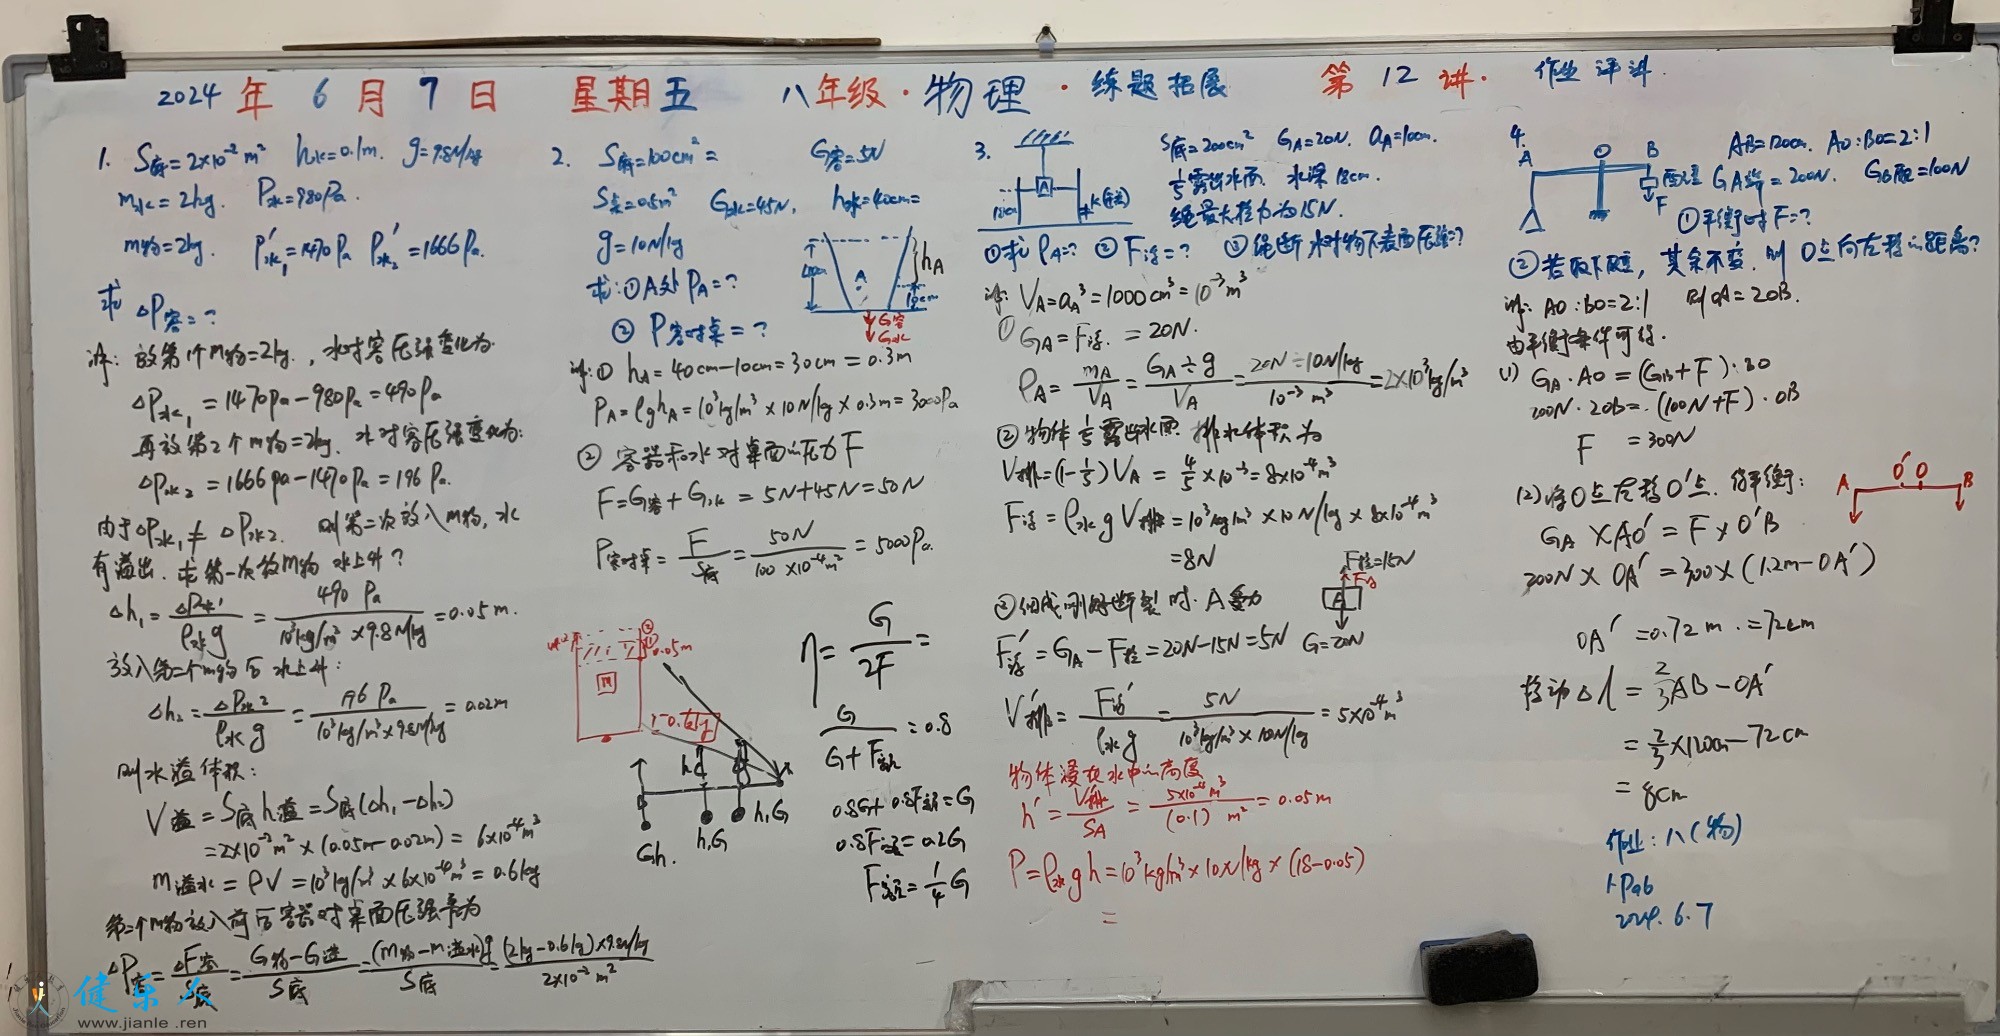 2024 年 6 月 7 日 星期五 八年级·物理·练题拓展 第 12 讲· 作业评讲
1. S底=2×10⁻² m² h水=0.1m. g=9.8N/kg
m水=2kg. P水=980Pa.
m物=2kg. P水₁'=1470Pa P水₂'=1666Pa.
求 △P容=?
解: 放第1个m物=2kg., 水对容压强变化为
△P水₁=1470Pa-980Pa=490Pa
再放第2个m物=2kg. 水对容压强变化为:
△P水₂=1666Pa-1470Pa=196Pa.
由于△P水₁≠△P水₂. 则第二次放入m物, 水
有溢出. 求第一次放m物 水上升?
△h₁=△P水₁/ρ水g=490Pa/10³kg/m³×9.8N/kg=0.05m.
放入第二个m物后 水上升:
△h₂=△P水2/ρ水g=196Pa/10³kg/m³×9.8N/kg=0.02m
则水溢体积:
V溢=S底h溢=S底(△h₁-△h₂)
=2×10⁻²m²×(0.05m-0.02m)=6×10⁻⁴m³
m溢水=ρV=10³kg/m³×6×10⁻⁴m³=0.6kg
第二个m物放入前后容器对桌面压强差为
△P容=△F容/S底=G物-G溢/S底=(m物-m溢水)g/S底=(2kg-0.6kg)×9.8N/kg/2×10⁻²m²
2. S底=100cm²= G容=5N
S桌=0.5m² G水=45N, h水=40cm=
g=10N/kg
求:①A处PA=?
② P容对桌=?
40cm
A
hA
10cm
G容
G水
解:① hA=40cm-10cm=30cm=0.3m
PA=ρghA=10³kg/m³×10N/kg×0.3m=3000Pa
② 容器和水对桌面的压力F
F=G容+G水=5N+45N=50N
P容对桌=F/S底=50N/100×10⁻⁴m²=5000Pa.
0.05m
m
h₁G
h,G
Gh.
η=G/2F=
G/G+F动=0.8
0.8F动=0.2G
3.
A
S底=200cm² GA=20N. aA=10cm.
1/5露出水面. 水深18cm.
绳最大拉力为15N.
①求ρA=? ②F浮=? ③绳断水对物下表面压强?
解: VA=aA³=1000cm³=10⁻³m³
① GA=F浮.=20N.
ρA=mA/VA=GA÷g/VA=20N÷10N/kg/10⁻³m³=2×10³kg/m³
②物体1/5露出水面 排水体积为
V排=(1-1/5)VA=4/5×10⁻³=8×10⁻⁴m³
F浮=ρ水gV排=10³kg/m³×10N/kg×8×10⁻⁴m³
=8N
③细线刚好断裂时. A受力
F拉=15N
F浮
A
G=20N
F浮'=GA-F拉=20N-15N=5N
V排'=F浮'/ρ水g=5N/10³kg/m³×10N/kg=5×10⁻⁴m³
物体浸在水中的高度
h'=V排'/SA=5×10⁻⁴m³/(0.1)m²=0.05m
P=ρ水gh=10³kg/m³×10N/kg×(18-0.05)
=
4.
A O B
F
AB=120cm. AO:BO=2:1
GA=200N. GB配=100N
①平衡时F=?
②若取下配重, 其余不变. 则O点向左移的距离?
解: AO:BO=2:1 则OA=2OB.
由平衡条件可得.
(1) GA·AO=(GB+F)·BO
200N·2OB=(100N+F)·OB
F=300N
(2) 将O点左移O'点. 得平衡:
A O' O B
GA×AO'=F×O'B
200N×OA'=300×(1.2m-OA')
OA'=0.72m.=72cm
移动△l=2/3AB-OA'
=2/3×120cm-72cm
=8cm
作业:八(物)
2024.6.7
健乐人
www.jianle.ren